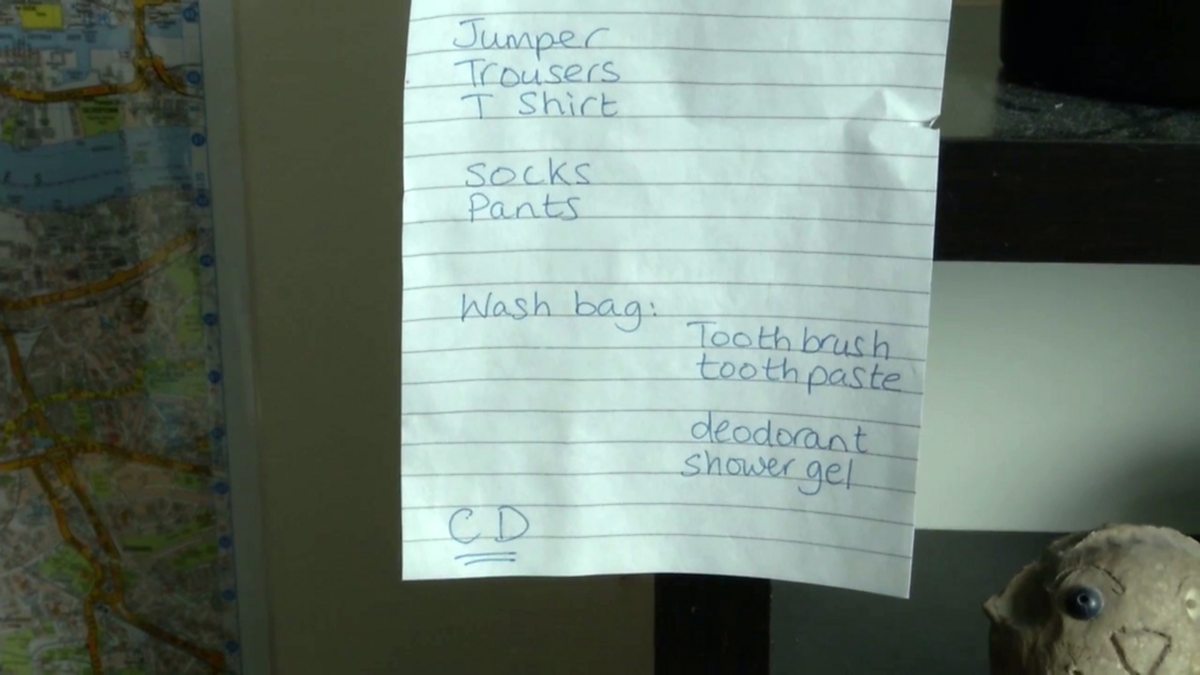 Jumper
Trousers
T Shirt
Socks
Pants
Wash bag:
Toothbrush
toothpaste
deodorant
shower gel
CD